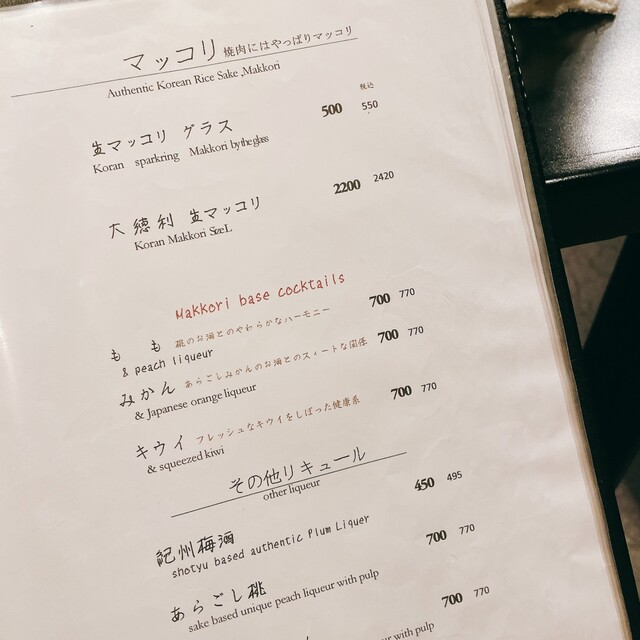 マッコリ 焼肉にはやっぱりマッコリ
Authentic Korean Rice Sake ,Makkori
税込
生マッコリ グラス 500 550
Koran sparkring Makkori by the glass
大徳利 生マッコリ 2200 2420
Koran Makkori Size L
Makkori base cocktails
もも 桃のお酒とのやわらかなハーモニー 700 770
& peach liqueur
みかん あらごしみかんのお酒とのスィートな関係 700 770
& Japanese orange liqueur
キウイ フレッシュなキウイをしぼった健康系 700 770
& squeezed kiwi
その他リキュール
other liqueur
紀州梅酒 450 495
shotyu based authentic Plum Liquer
あらごし桃 700 770
sake based unique peach liqueur with pulp
700 770
ur with pulp